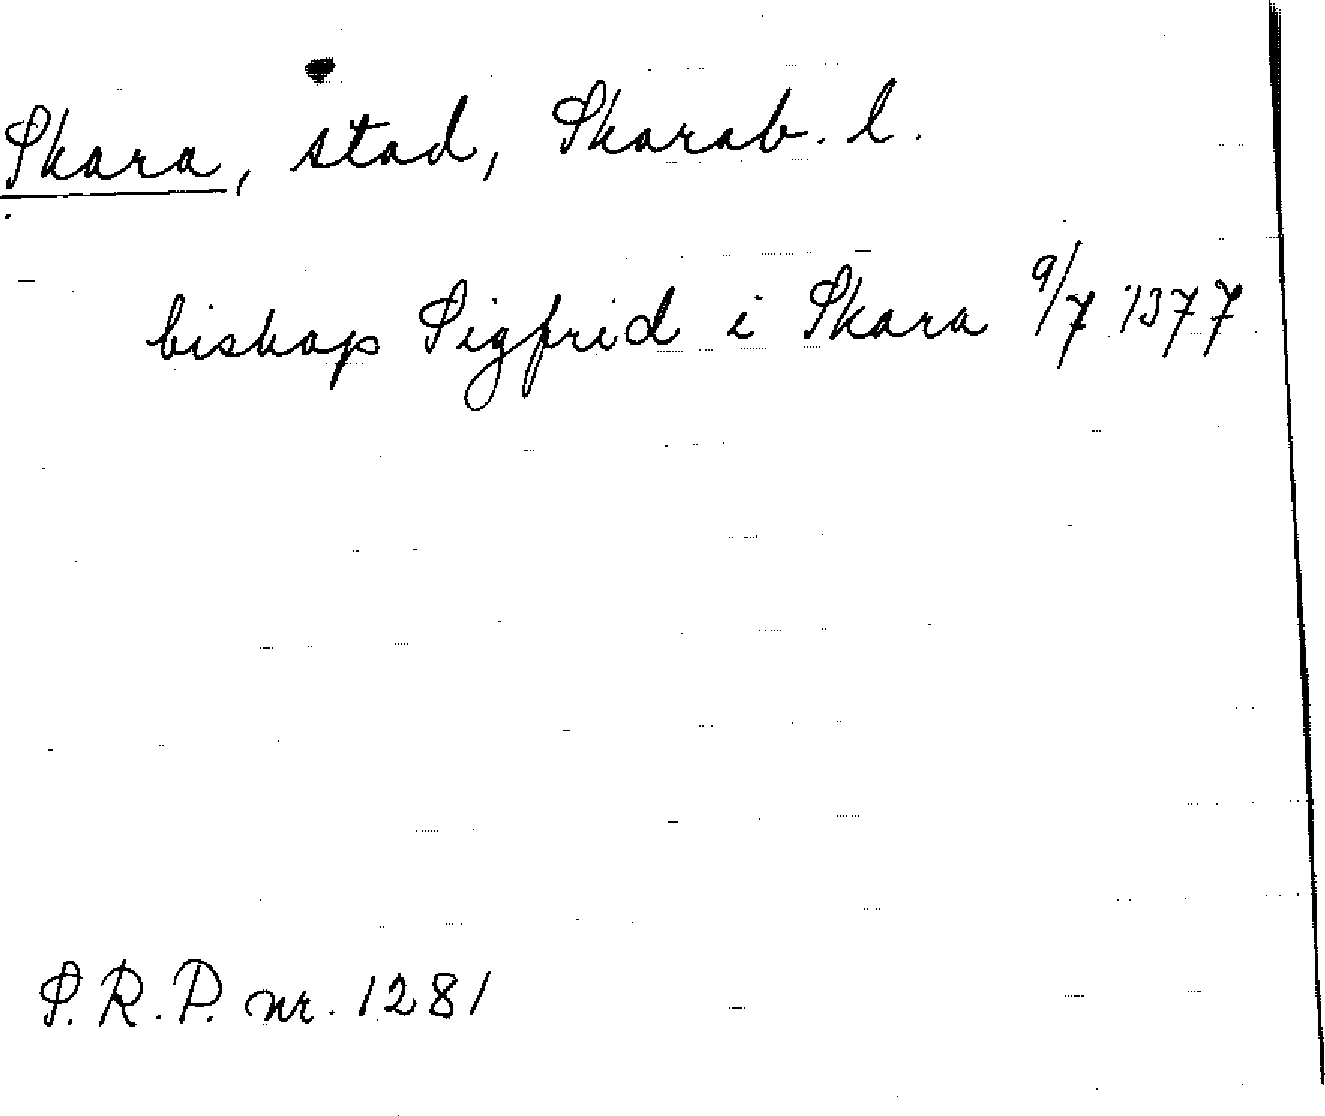 Skara, stad, Skarab. l.
biskop Sigfrid i Skara 9/7 1377
S.R.P. nr. 1281